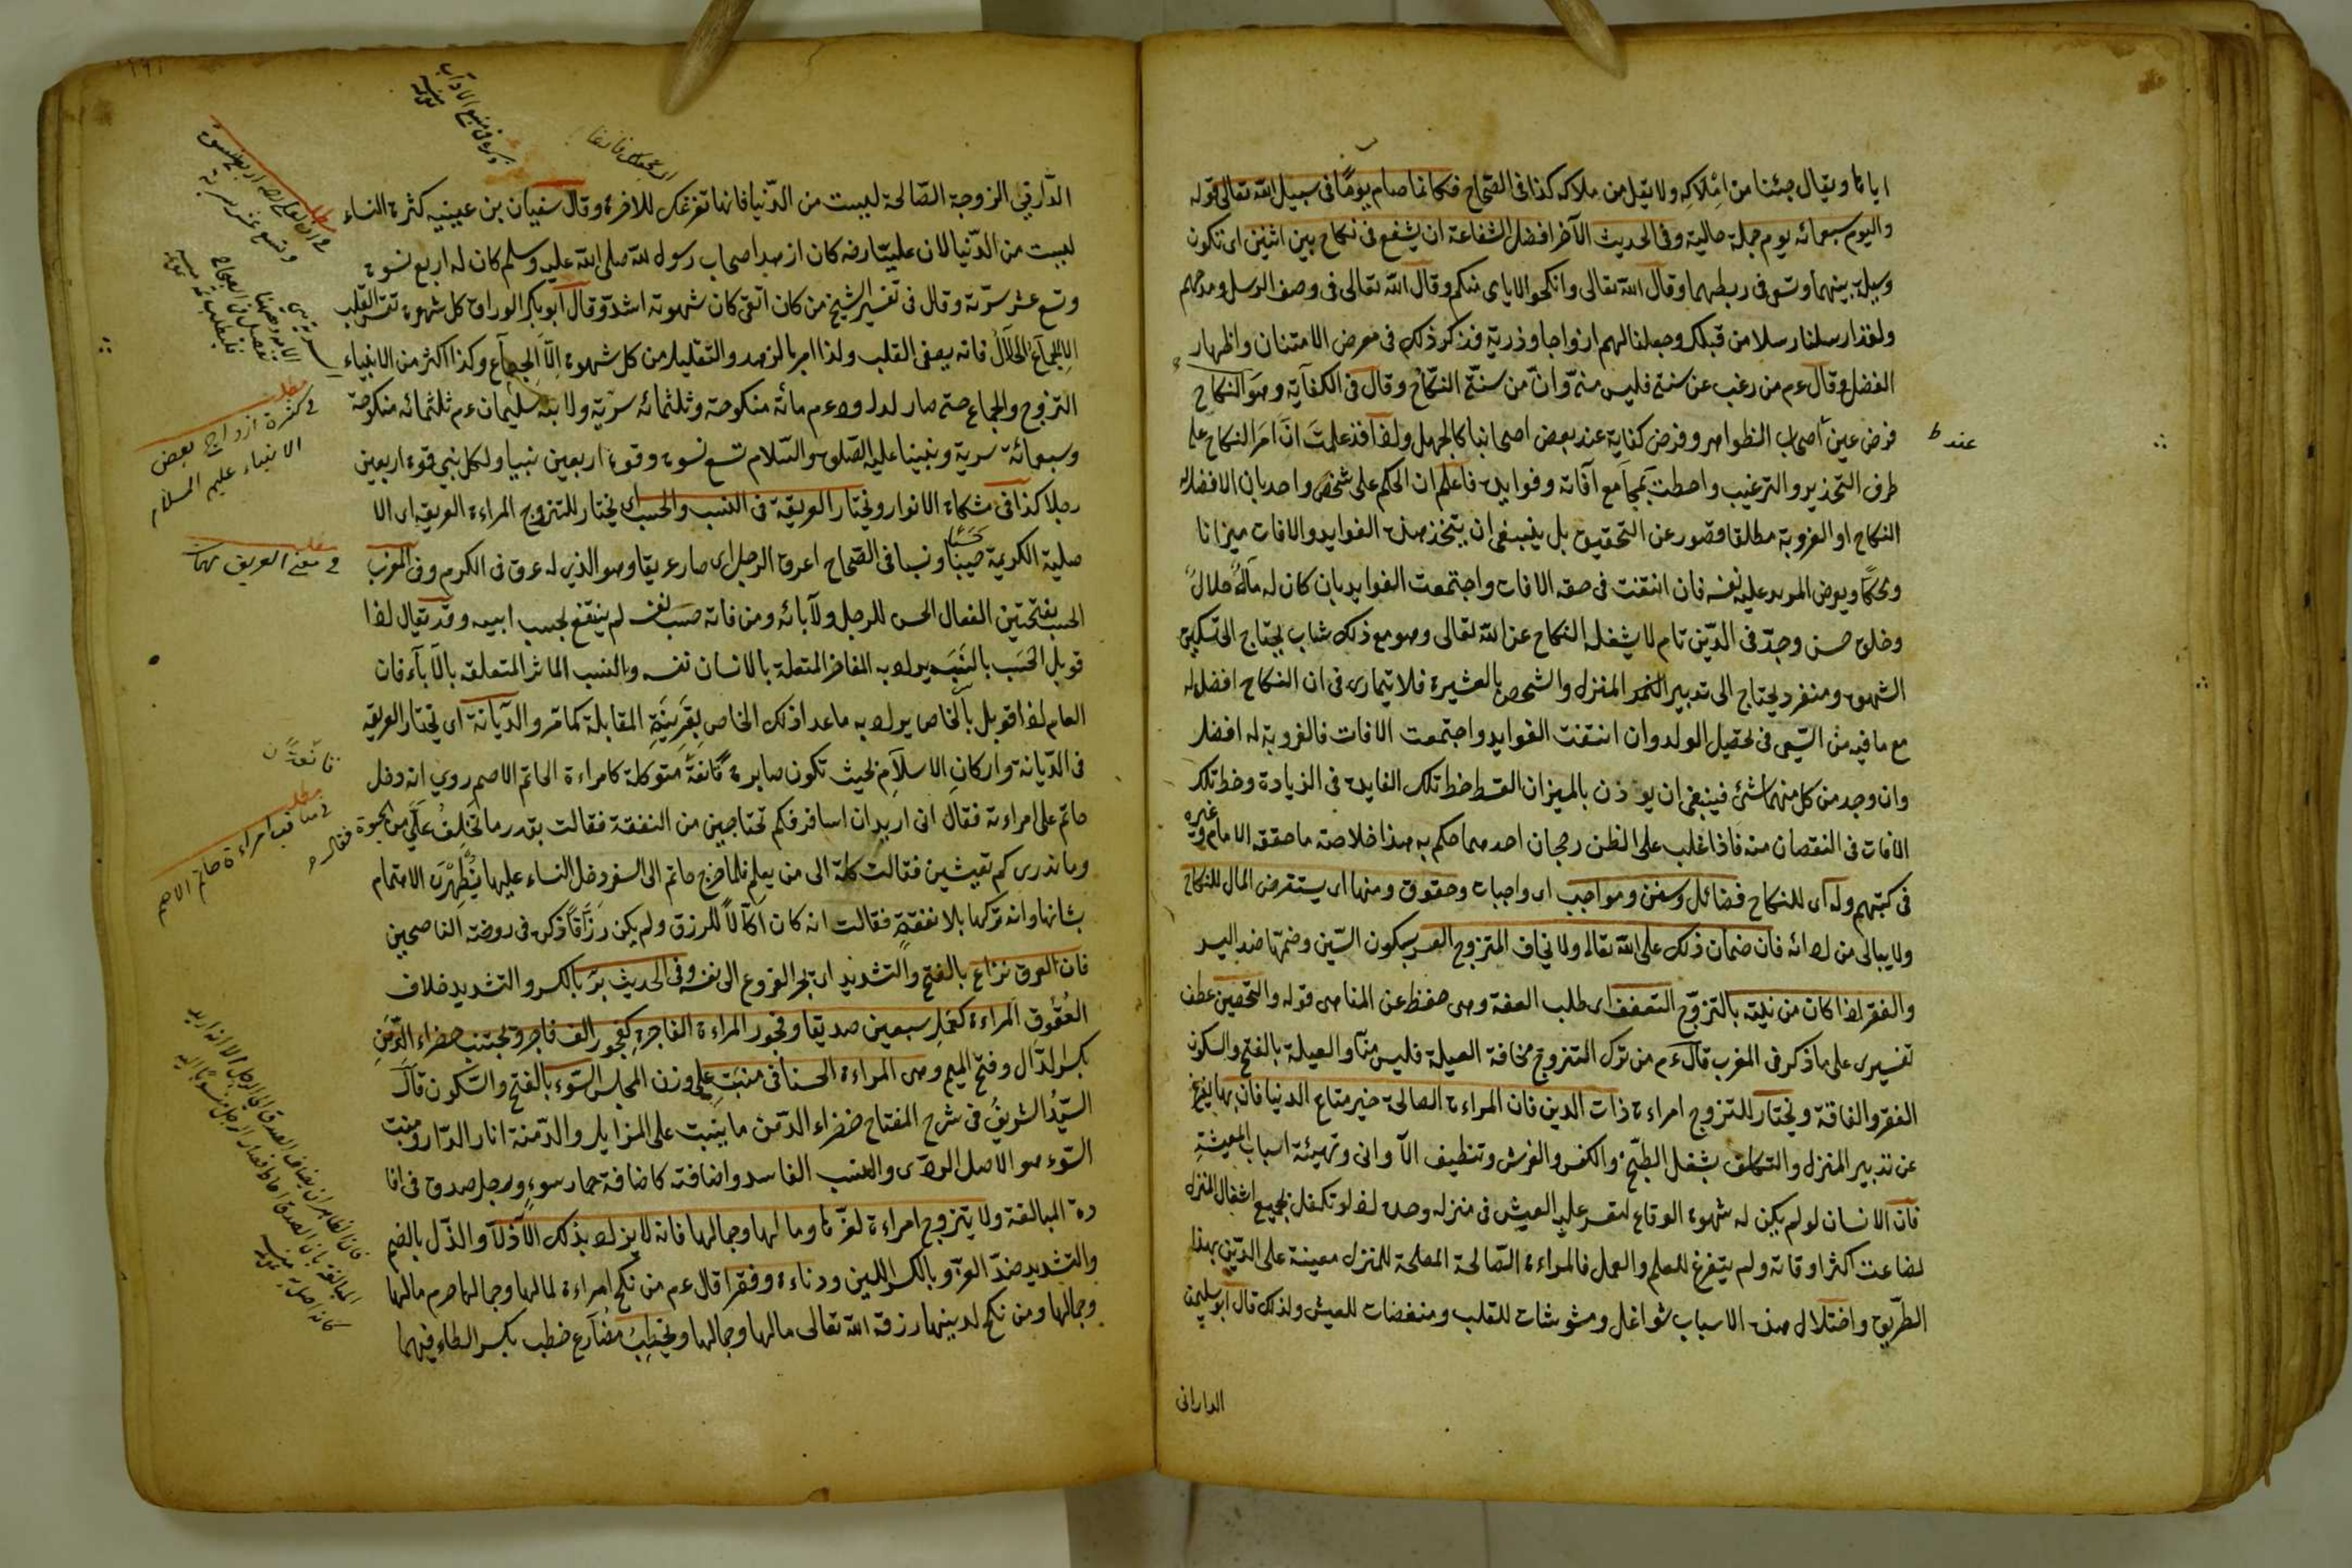 ايانا ويقال جئنا من املاكه ولا تقل من ملاكه كذا فى الصحاح فكانما صام يومًا فى سبيل الله تعالى قوله
واليوم سبعمائه يوم جملة حالية وفى الحديث الآخر افضل الشفاعة ان يشفع فى نكاح بين اثنين اى تكون
وسيلة بينهما وتسعى فى ربطهما وقال الله تعالى وانكحوا الايامى منكم وقال الله تعالى فى وصف الرسل ومدحهم
ولقد ارسلنا رسلا من قبلك وجعلنا لهم ازواجا وذرية فذكر ذلك فى معرض الامتنان واظهار
الفضل وقال ءم من رغب عن سنتى فليس منى وانّ من سنتى النكاح وقال فى الكفاية وهو النكاح
فرض عين اصحاب الظواهر وفرض كفاية عند بعض اصحابنا كالجهل ولقد علمت ان امر النكاح على
عند ط
طرف التحذير والترغيب واحطت بمجامع آفاته وفوايده فاعلم ان الحكم على شخص واحد بان الافضل له
النكاح او العزوبة مطلقا قصور عن التحقيق بل ينبغى ان يتخذ هذه الفوايد والافات ميزانا
ومحكا ويعرض المريد عليه نفسه فان انتفت فى حقه الافات واجتمعت الفوايد بان كان له مال حلال
وخلق حسن وجدّ فى الدّين تام لا يشغله النكاح عن الله تعالى وهو مع ذلك شاب يحتاج الى تسكين
الشهوة ومنفرد يحتاج الى تدبير المنزل والتحصن بالعشيرة فلا يتمارى فى ان النكاح افضل له
مع ما فيه من السّعى فى تحصيل الولد وان انتفت الفوايد واجتمعت الافات فالعزوبة له افضل
وان وجد من كل منهما شئ فينبغى ان يوزن بالميزان القسط حظ تلك الفايدة فى الزيادة وحظ تلك
الافات فى النقصان منه فاذا غلب على الظن رجحان احدهما حكم به هذا خلاصة ما حققه الامام وغيره
فى كتبهم وله اى للنكاح فضائل وسنن ومواجب اى واجبات وحقوق ومنها اى يستقرض المال للنكاح
ولا يبالى من ادائه فان ضمان ذلك على الله تعالى ولا يخاف المتزوج العسر بسكون السّين وضمّها ضد اليسر
والفقر اذا كان من نيته بالتزوّج التعفف اى طلب العفة وهى حفظ عن المناهى قوله والتحصين عطف
تفسيرى على ما ذكر فى المغرب قال ءم من ترك التزوج مخافة العيلة فليس منا والعيلة بالفتح والسكون
الفقر والفاقة ويختار للتزوج امراءة ذات الدين فان المراءة الصالحة خير متاع الدنيا فان بها يفرغ
عن تدبير المنزل والتكلف بشغل الطبخ والكنس والفرش وتنظيف الآوانى وتهيئة اسباب المعيشة
فان الانسان لو لم يكن له شهوة الوقاع لتعسر عليه العيش فى منزله وحده اذ لو تكفل بجميع اشغال المنزل
لضاعت اكثر اوقاته ولم يتفرغ للعلم والعمل فالمراءة الصّالحة المصلحة للمنزل معينة على الدّين بهذا
الطّريق واختلال هذه الاسباب شواغل ومشوشات للقلب ومنغصات للعيش ولذلك قال ابو سليمن
الدارانى
الدّارنى الزوجة الصّالحة ليست من الدّنيا فانها تفرغك للاخرة وقال سفيان بن عيينيه كثرة النساء
ليست من الدّنيا لان عليّا رضه كان ازهد اصحاب رسول الله صلى الله عليه وسلم كان له اربع نسوة
وتسع عشر سرّية وقال فى تفسير الشيخ من كان اتقى كان شهوته اشدّ وقال ابو بكر الوراق كل شهوة تقسى القلب
الا الجماع الحلال فانه يصفى القلب ولذا امر بالزهد والتقليل من كل شهوة الّا الجماع وكذا اكثر من الانبياء
التزوج والجماع حتى صار لداود ءم مائة منكوحة وثلثمائه سرّية ولابنه سليمان ءم ثلثمائه منكوحة
وسبعمائة سرية ونبينا عليه الصّلوة والسّلام تسع نسوة وقوة اربعين نبيا ولكل نبى قوة اربعين
رجلا كذا فى مشكاة الانوار ويختار العريقة فى النسب والحسب اى يختار للتزوج المراءة العريقه اى الا
صلية الكريمة حسبًا ونسبا فى الصّحاح اعرق الرجل اى صار عريقا وهو الذى له عرق فى الكرم وفى المغرب
الحسب بفتحتين الفعال الحسن للرجل ولآبائه ومن فاته حسب نفسه لم ينتفع بحسب ابيه وقد يقال اذا
قوبل الحسب بالنسب يراد به المفاخر المتعلقة بالانسان نفسه والنسب الماثر المتعلقه بالآباء فان
العام اذا قوبل بالخاص يراد به ما عدا ذلك الخاص بقرينة المقابلة كما مر والدّيانة اى تختار العريقه
فى الدّيانة واركان الاسلام بحيث تكون صابرة قانعة متوكلة كامراءة الحاتم الاصم روى انه دخل
حاتم على امراءته فقال انى اريد ان اسافر فكم تحتاجين من النفقة فقالت بقدر ما تخلف علىّ من الحيوة فقال
وما ندرى كم تعيشين فقالت كله الى من يعلم فلما خرج حاتم الى السفر دخل النساء عليها يظهرن الاهتمام
بشانها وانه تركها بلا نفقةٍ فقالت انه كان اكّالاً للرزق ولم يكن رزّاقًا ذكره فى روضة الناصحين
فان العرق نزاع بالفتح والتشديد اى يجر الفروع الى نفسه وفى الحديث بّر بالكسر والتشديد خلاف
العُقُوق المراءة كعمل سبعين صديقا وفجور المراءة الفاجرة كفجور الف فاجر ويجتنب خضراء الدّمن
بكسر الدّال وفتح الميم وهى المراءة الحسنا فى منبت على وزن المجلس السّوء بالفتح والسّكون قال
السيّد الشريف فى شرح المفتاح خضراء الدّمن ما ينبت على المزابل والدّمنة اثار الدّار ومنبت
السّوء هو الاصل الردى والنسب الفاسد واضافته كاضافة حمار سوءٍ ورجل صدق فى افا
دة المبالغة ولا يتزوج امراءة لعزّها ومالها وجمالها فانه لا يزاد بذلك الّا ذلّا والذّل بالضم
والتشديد ضدّ العزّ وبالكسر اللين ودناءة وفقرا قال ءم من نكح امراءة لمالها وجمالها حرم مالها
وجمالها ومن نكح لدينها رزقه الله تعالى مالها وجمالها ويخطب مضارع خطب بكسر الطاء فيهما
مطلب
فى كثرة ازواج بعض
الانبياء عليهم السلام
مطلب
فى معنى العريق
قانعة ن
مطلب
فى مناقب امراءة حاتم الاصم